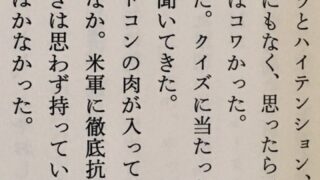 うとハイテンション、
にもなく、思ったら
はコワかった。
た。クイズに当たっ
聞いてきた。
コンの肉が入って
なか。米軍に徹底抗
は思わず持ってい
はかなかった。